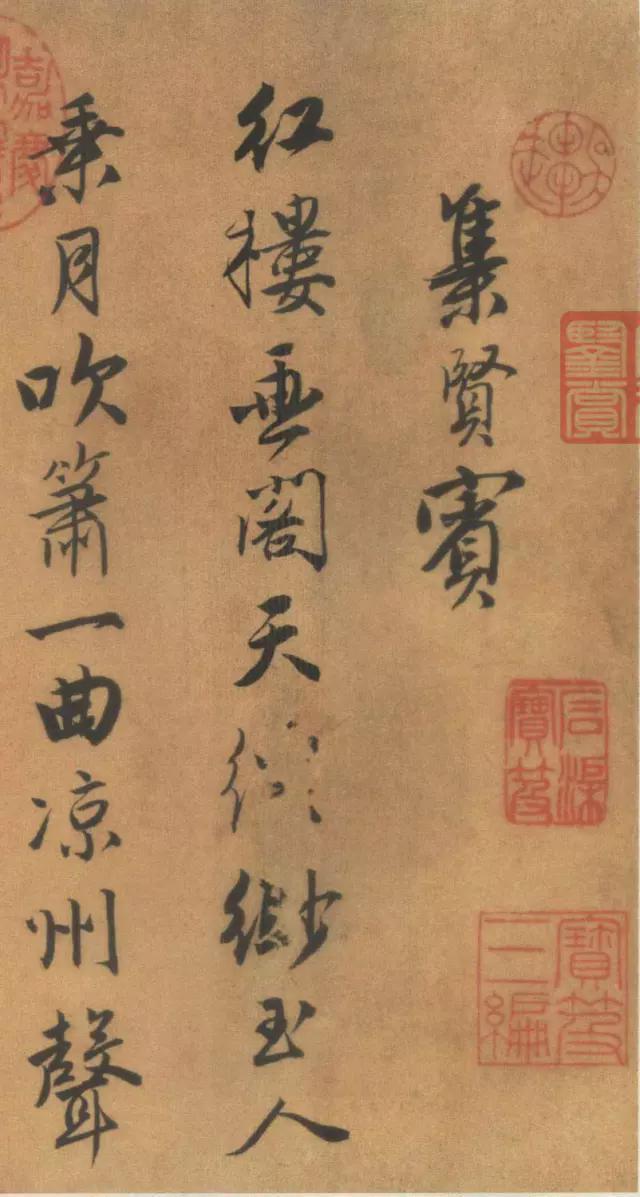 集賢賓
紅樓畫閣天緲玉人
乘月吹簫一曲凉州聲
石渠寶笈
寶笈三編
鑒賞
嘉慶